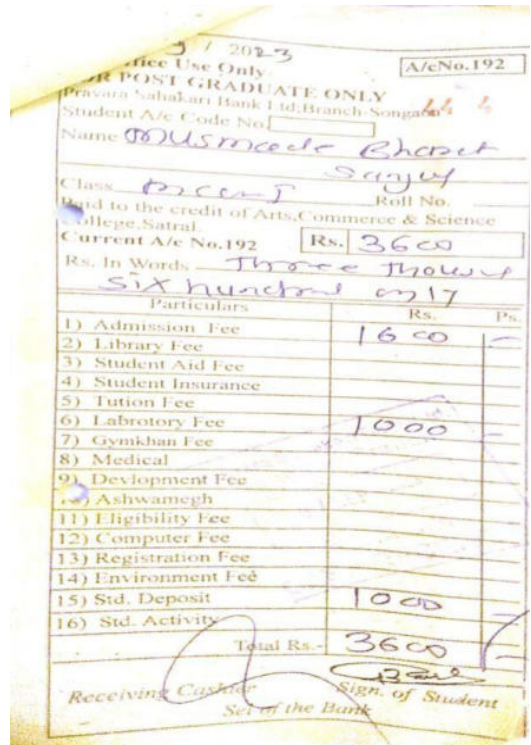 / 2023
Office Use Only A/cNo.192
FOR POST GRADUATE ONLY
Pravara Sahakari Bank Ltd;Branch-Songaon
Student A/c Code No.
Name Musmade Bharat
Sanjay
Class Roll No.
Paid to the credit of Arts,Commerce & Science
College,Satral.
Current A/c No.192 Rs. 3600
Rs. In Words Three Thousand
Six hundred only
Particulars Rs. Ps.
1) Admission Fee 1600 -
2) Library Fee
3) Student Aid Fee
4) Student Insurance
5) Tution Fee
6) Labrotory Fee 1000 -
7) Gymkhan Fee
8) Medical
9) Devlopment Fee
10) Ashwamegh
11) Eligibility Fee
12) Computer Fee
13) Registration Fee
14) Environment Fee
15) Std. Deposit 1000 -
16) Std. Activity
Total Rs.- 3600 -
Receiving Cashier Sign. of Student
Sel of the Bank